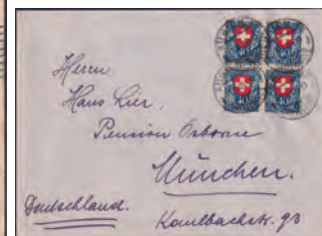 Herrn
Hans Lier,
Pension Osborne
München.
Deutschland.
Kaulbachstr. 93
40 40
40 40